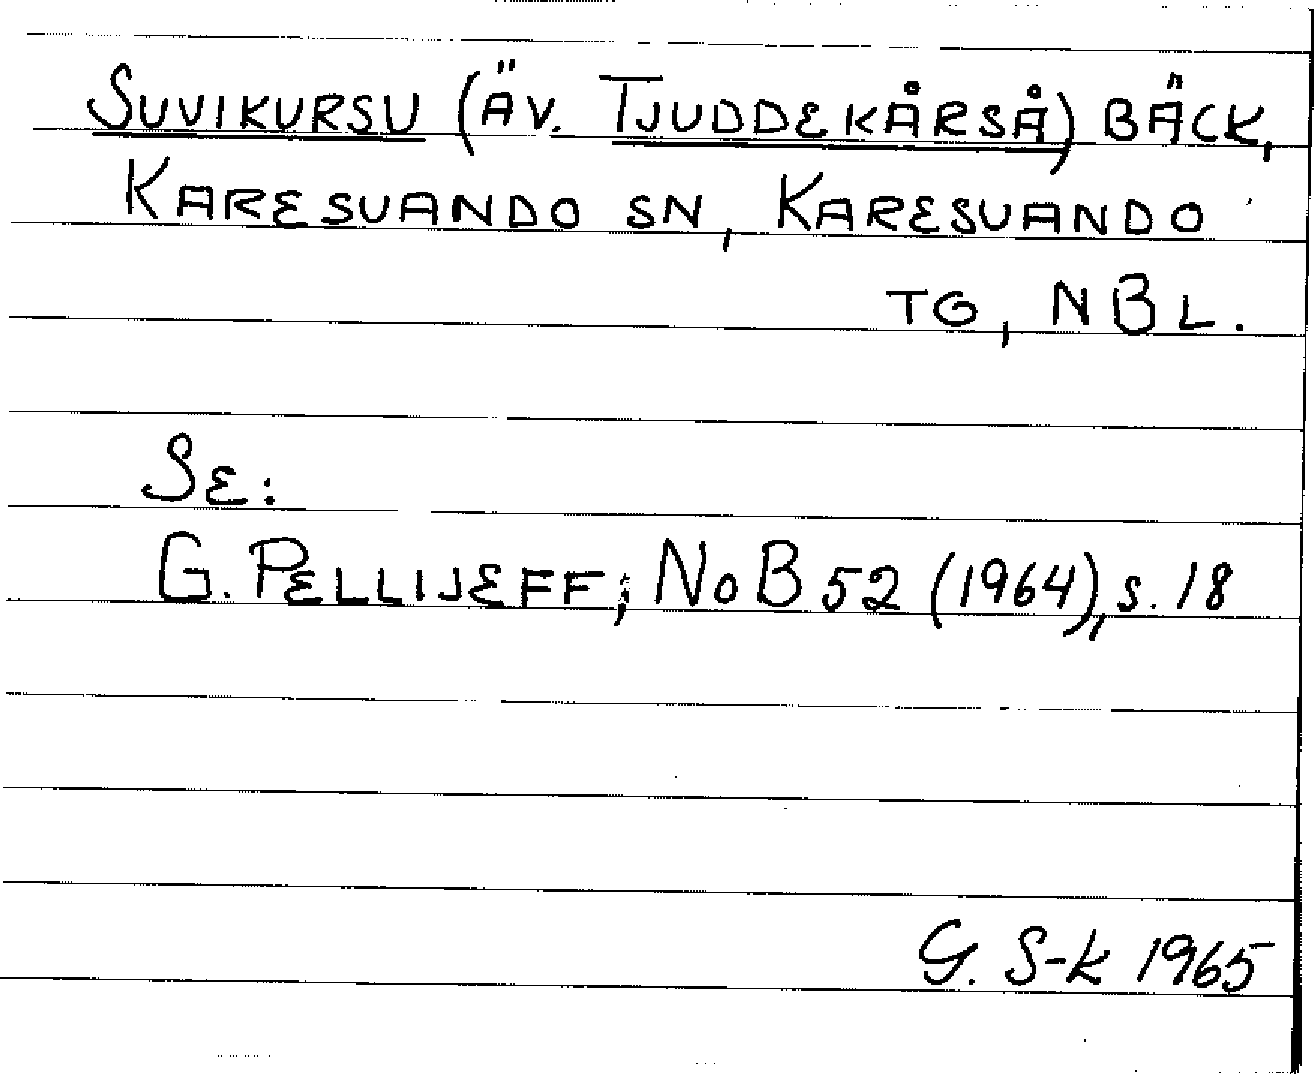 SUVIKURSU (ÄV. TJUDDEKÅRSÅ) BÄCK,
KARESUANDO SN, KARESUANDO
TG, NBL.
SE:
G. PELLIJEFF; NoB 52 (1964), s. 18
G. S-k 1965